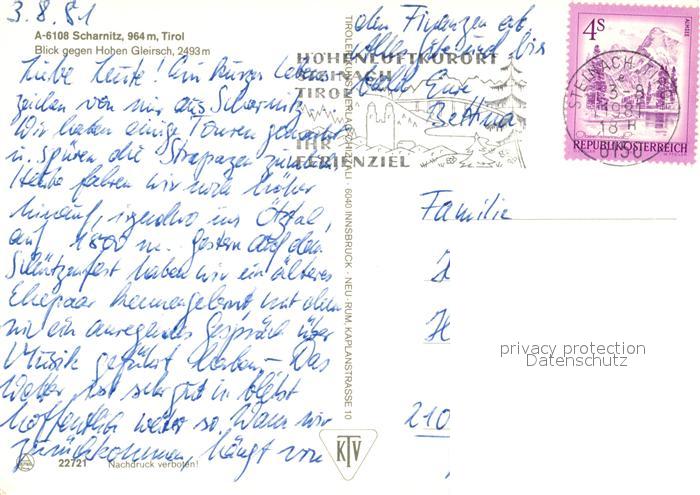 3.8.81
A-6108 Scharnitz, 964 m, Tirol
Blick gegen Hohen Gleirsch, 2493 m
Liebe Leute! Ein kurzes Lebens-
zeichen von mir aus Scharnitz.
Wir haben einige Touren gemacht
u. spüren die Strapazen
Heute fahren wir noch höher
hinauf, irgendwo ins Ötztal,
auf 1800 m. Gestern auf dem
Schützenfest haben wir ein älteres
Ehepaar kennengelernt, mit dem
wir ein anregendes Gespräch über
Musik geführt haben. - Das
Wetter ist sehr gut u. bleibt
hoffentlich weiter so. Wann wir
zurückkommen, hängt von
den Finanzen ab.
Alles Gute und bis
bald Eure
Bettina
22721 Nachdruck verboten!
TIROLER KUNSTVERLAG CHIZZALI · 6040 INNSBRUCK - NEU-RUM, KAPLANSTRASSE 10
KTV
HÖHENLUFTKURORT
STEINACH
TIROL
IHR
FERIENZIEL
4S
ALMSEE
REPUBLIK ÖSTERREICH
STEINACH
-3.-8.
1981
18 H
6150
Familie
H
210
privacy protection
Datenschutz